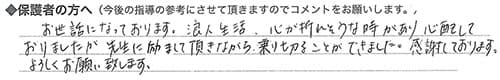 ◆保護者の方へ（今後の指導の参考にさせて頂きますのでコメントをお願いします。）
お世話になっております。浪人生活、心が折れそうな時があり心配して
おりましたが先生に励まして頂きながら乗り切ることができました。感謝しております。
よろしくお願い致します。